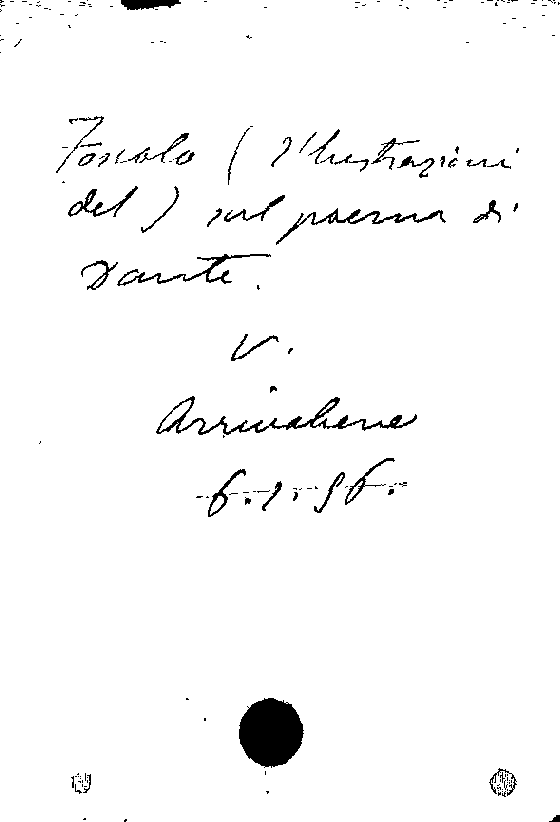 Foscolo ( Illustrazioni
del ) sul poema di
Dante.
V.
Arrivabene
6.1.56.